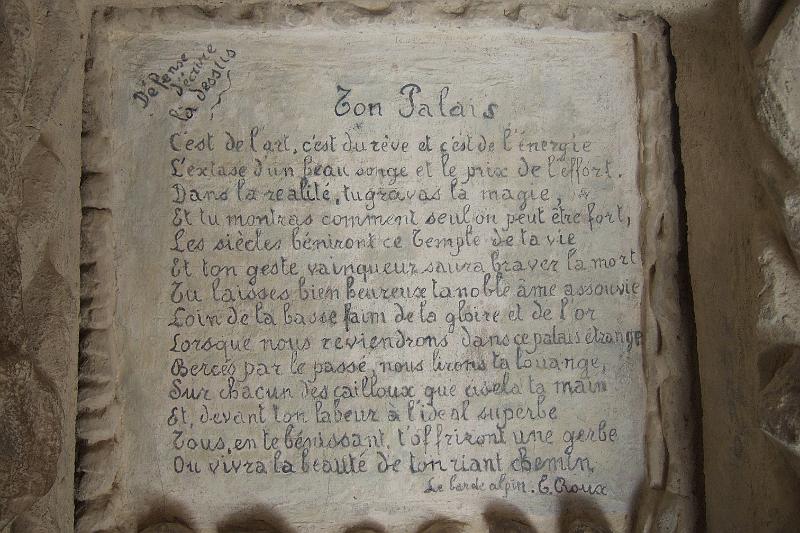 Défense
d'écrire
là dessus
Ton Palais
C'est de l'art, c'est du rêve et c'est de l'énergie
L'extase d'un beau songe et le prix de l'effort.
Dans la réalité, tu gravas la magie,
Et tu montras comment seul on peut être fort,
Les siècles béniront ce Temple de ta vie
Et ton geste vainqueur saura braver la mort
Tu laisses bien heureux ta noble âme assouvie
Loin de la basse faim de la gloire et de l'or
Lorsque nous reviendrons dans ce palais étrange
Bercés par le passé, nous lirons ta louange,
Sur chacun des cailloux que cisela ta main
Et, devant ton labeur à l'idéal superbe
Tous, en te bénissant, t'offriront une gerbe
Ou vivra la beauté de ton riant chemin,
Le barde alpin. E. Roux